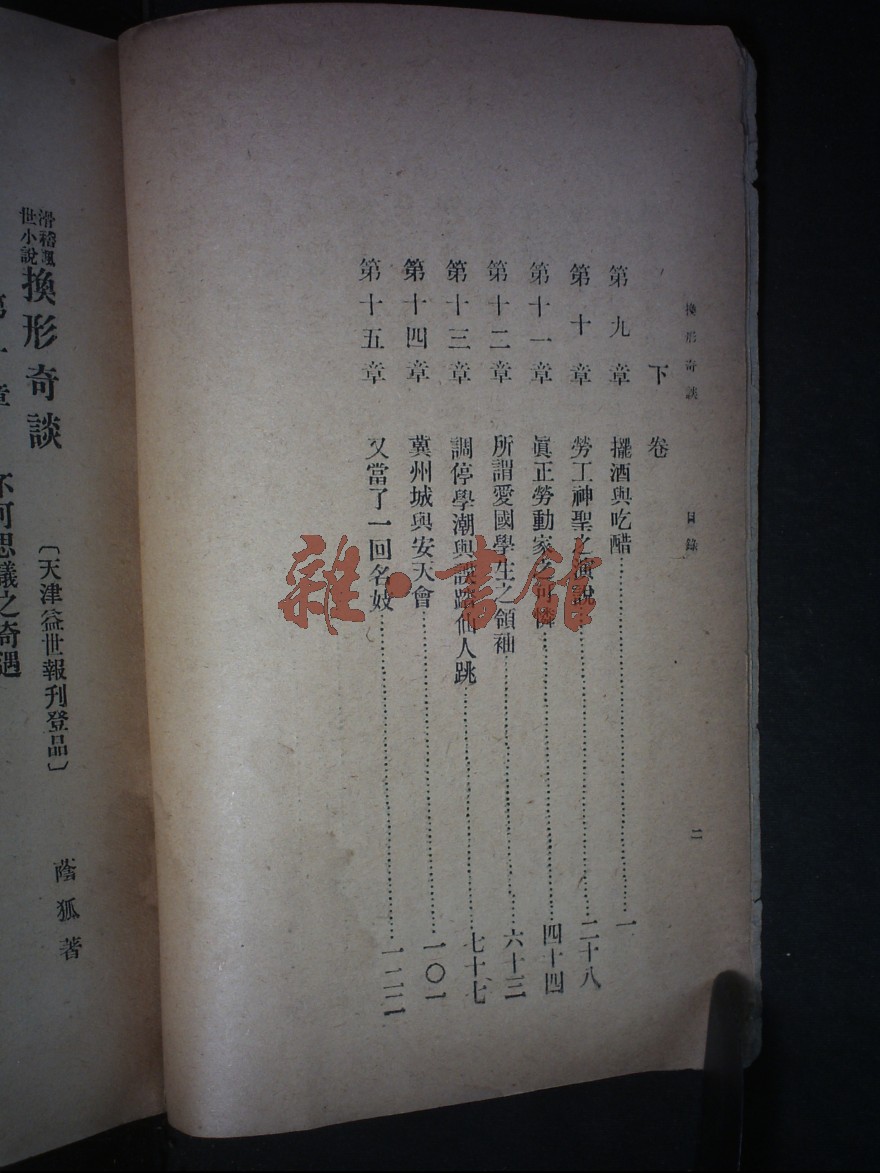 換形奇談 目錄 二
下卷
第九章 擺酒與吃醋……一
第十章 勞工神聖之演說……二十八
第十一章 眞正勞動家之可憐……四十四
第十二章 所謂愛國學生之領袖……六十三
第十三章 調停學潮與誤踏仙人跳……七十七
第十四章 冀州城與安天會……一〇一
第十五章 又當了一回名妓……一二二
雜·書館
滑稽諷世小說 換形奇談 〔天津益世報刊登品〕 蔭狐著
第一章 不可思議之奇遇